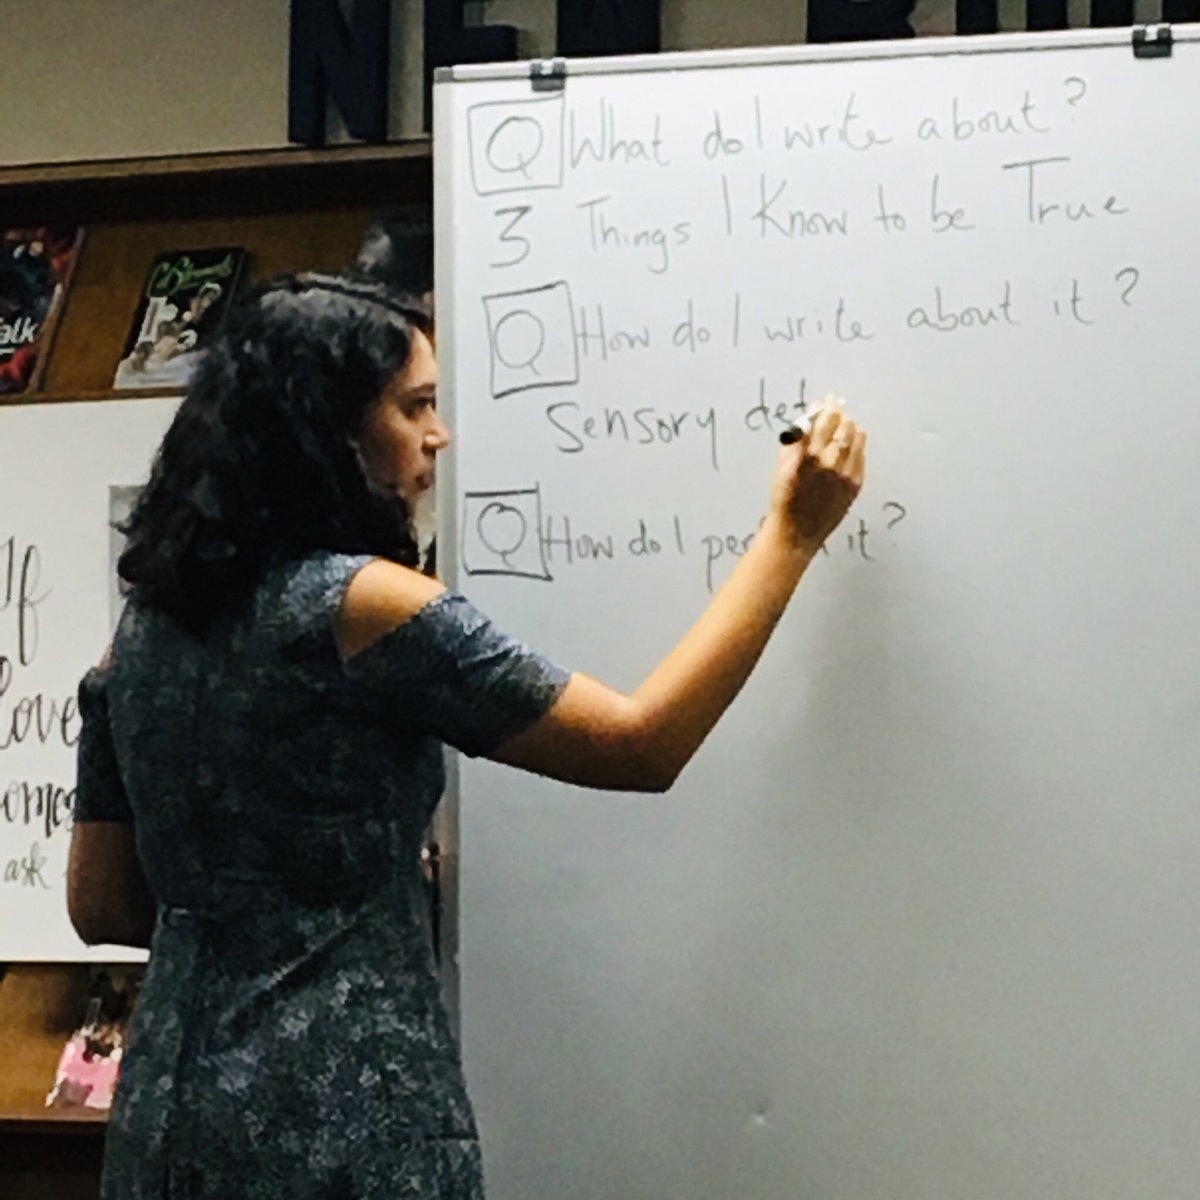 Q What do I write about?
3 Things I Know to be True
Q How do I write about it?
Sensory det
Q How do I per it?
If
Love
ask
alk